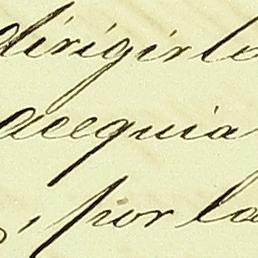 dirigirlo
acequia
, por la